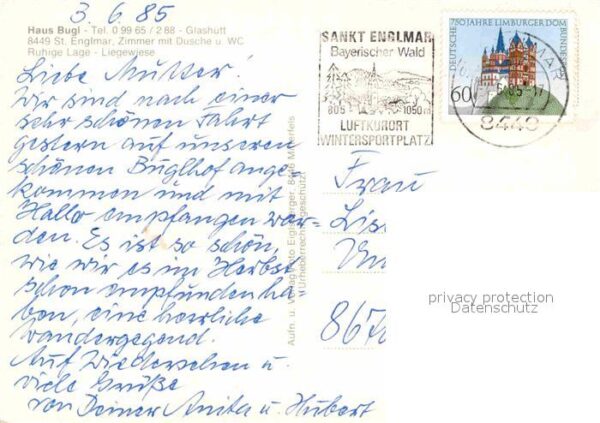 3. 6. 85
Haus Bugl - Tel. 0 99 65 / 2 88 - Glashütt
8449 St. Englmar, Zimmer mit Dusche u. WC
Ruhige Lage - Liegewiese
Liebe Mutter!
Wir sind nach einer
sehr schönen Fahrt
gestern auf unseren
schönen Buglhof ange-
kommen und mit
Hallo empfangen wor-
den. Es ist so schön,
wie wir es im Herbst
schon empfunden ha-
ben, eine herrliche
Wandergegend.
Auf Wiedersehen u.
viele Grüße
von Deiner Anita u. Hubert
SANKT ENGLMAR
Bayerischer Wald
805 - 1050 m
LUFTKURORT
WINTERSPORTPLATZ
750 JAHRE LIMBURGER DOM
DEUTSCHE BUNDES
60
MAR
8449
Aufn. u. Verlag Foto
Urheberrechtlich geschützt
Frau
867
privacy protection
Datenschutz